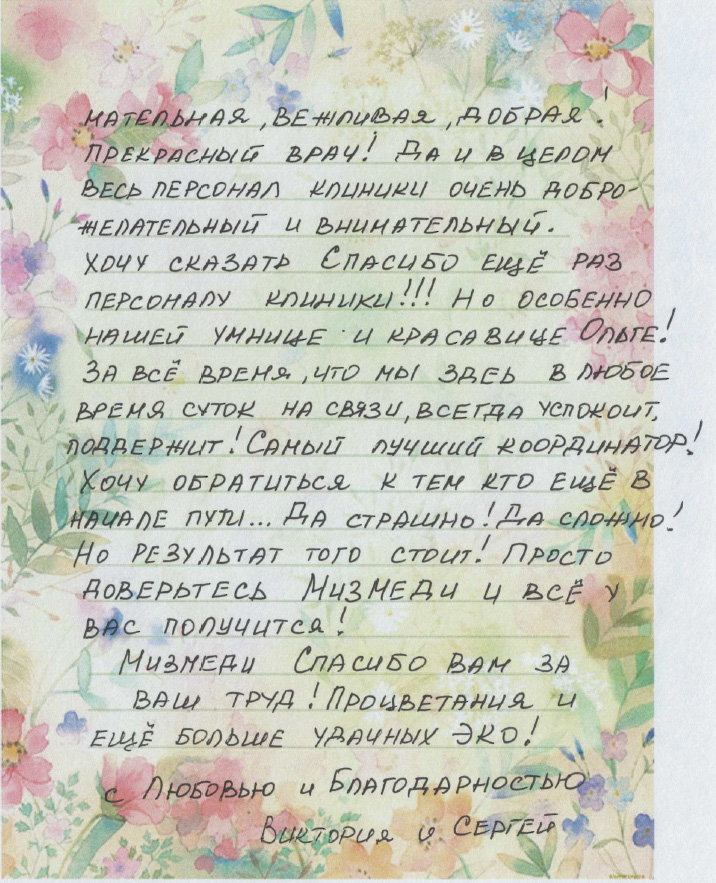 МАТЕЛЬНАЯ, ВЕЖЛИВАЯ, ДОБРАЯ!
ПРЕКРАСНЫЙ ВРАЧ! ДА И В ЦЕЛОМ
ВЕСЬ ПЕРСОНАЛ КЛИНИКИ ОЧЕНЬ ДОБРО-
ЖЕЛАТЕЛЬНЫЙ И ВНИМАТЕЛЬНЫЙ.
ХОЧУ СКАЗАТЬ СПАСИБО ЕЩЁ РАЗ
ПЕРСОНАЛУ КЛИНИКИ!!! НО ОСОБЕННО
НАШЕЙ УМНИЦЕ И КРАСАВИЦЕ ОЛЬГЕ!
ЗА ВСЁ ВРЕМЯ, ЧТО МЫ ЗДЕЬ В ЛЮБОЕ
ВРЕМЯ СУТОК НА СВЯЗИ, ВСЕГДА УСПОКОИТ,
ПОДДЕРЖИТ! САМЫЙ ЛУЧШИЙ КООРДИНАТОР!
ХОЧУ ОБРАТИТЬСЯ К ТЕМ КТО ЕЩЁ В
НАЧАЛЕ ПУТИ... ДА СТРАШНО! ДА СЛОЖНО!
НО РЕЗУЛЬТАТ ТОГО СТОИТ! ПРОСТО
ДОВЕРЬТЕСЬ МИЗМЕДИ И ВСЁ У
ВАС ПОЛУЧИТСЯ!
МИЗМЕДИ СПАСИБО ВАМ ЗА
ВАШ ТРУД! ПРОЦВЕТАНИЯ И
ЕЩЁ БОЛЬШЕ УДАЧНЫХ ЭКО!
С ЛЮБОВЬЮ И БЛАГОДАРНОСТЬЮ
ВИКТОРИЯ И СЕРГЕЙ